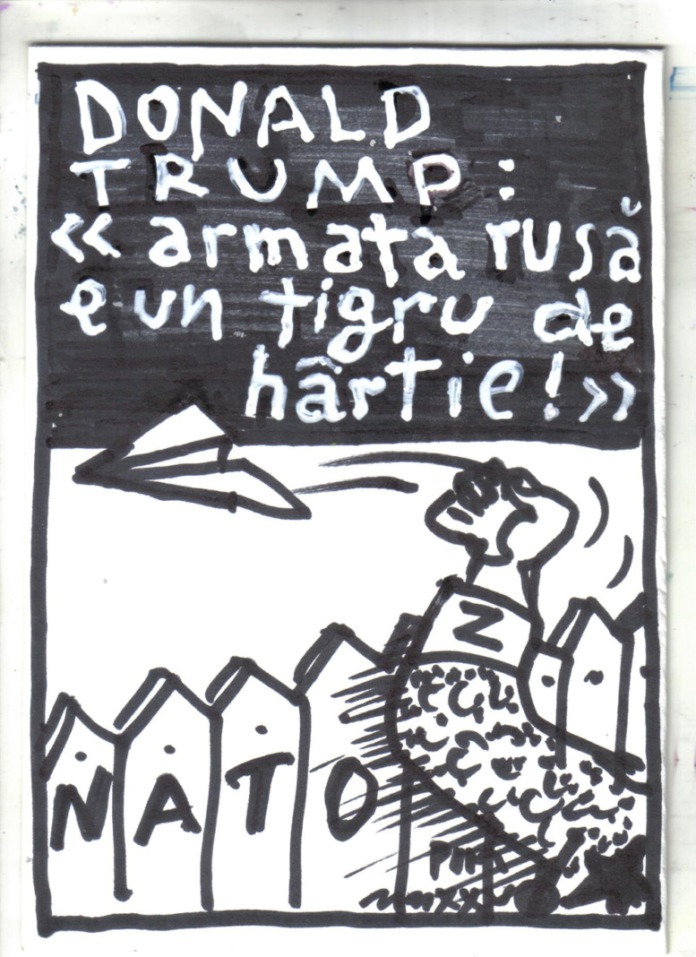 DONALD
TRUMP:
« armata rusă
e un tigru de
hârtie!»
Z
NATO